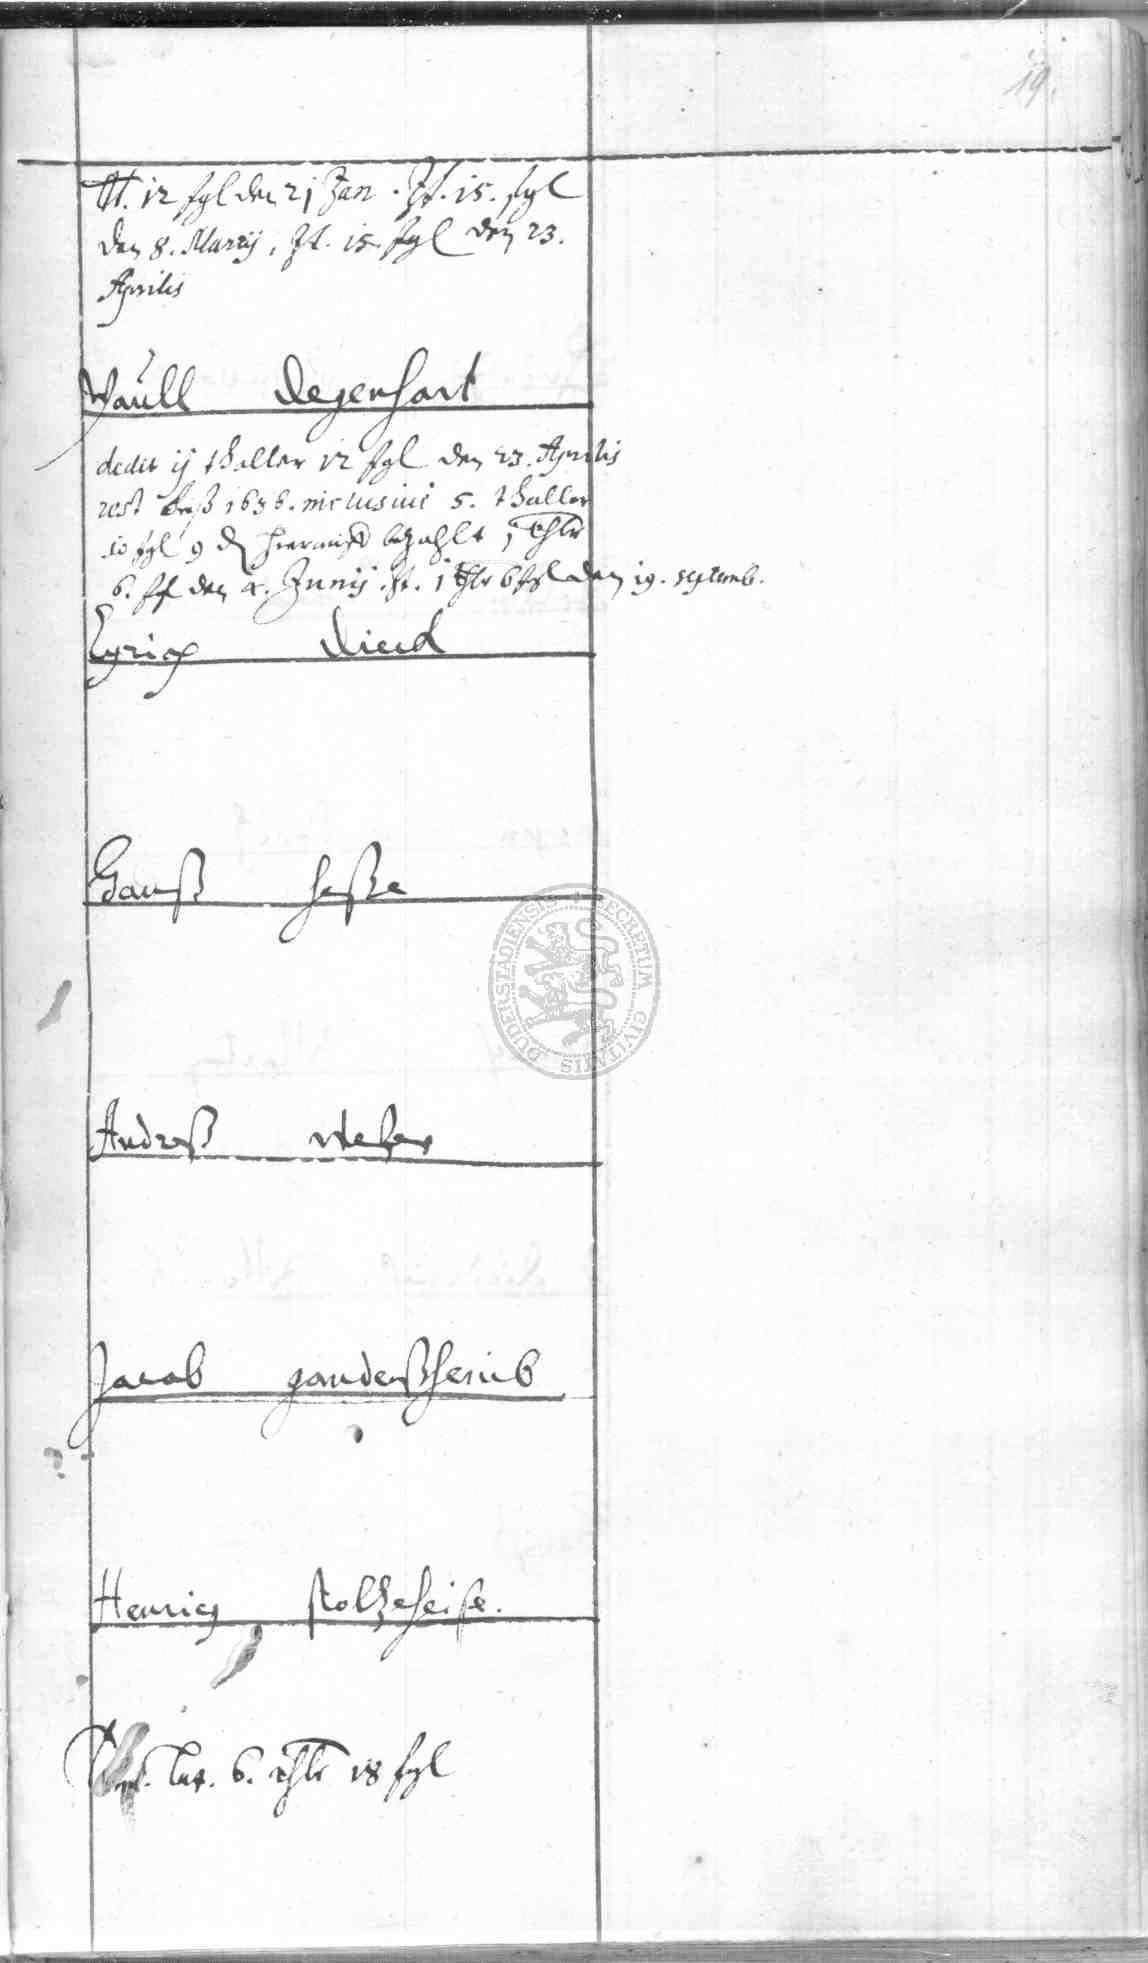 19.
tt. 12 sgl den 21 Jan. It. 15. sgl
den 8. Martij, It. 15. sgl den 23.
Aprilis
Paull Degenhart
dedit ij thaller 12 sgl den 23. Aprilis
rest 1636. inclusiue 5. thaller
10 sgl 9 d hierauff bezahlt 1 thlr
6. sgl den 4. Junij. It. 1 thlr 6 sgl den 19. septemb.
Hanß heße
Andreß weber
Jacob gandeßheimb
Henrich stoltzeheise.
lat. 6. thlr 18 sgl
DUDERSTADIENSIS SECRETUM CIVITATIS